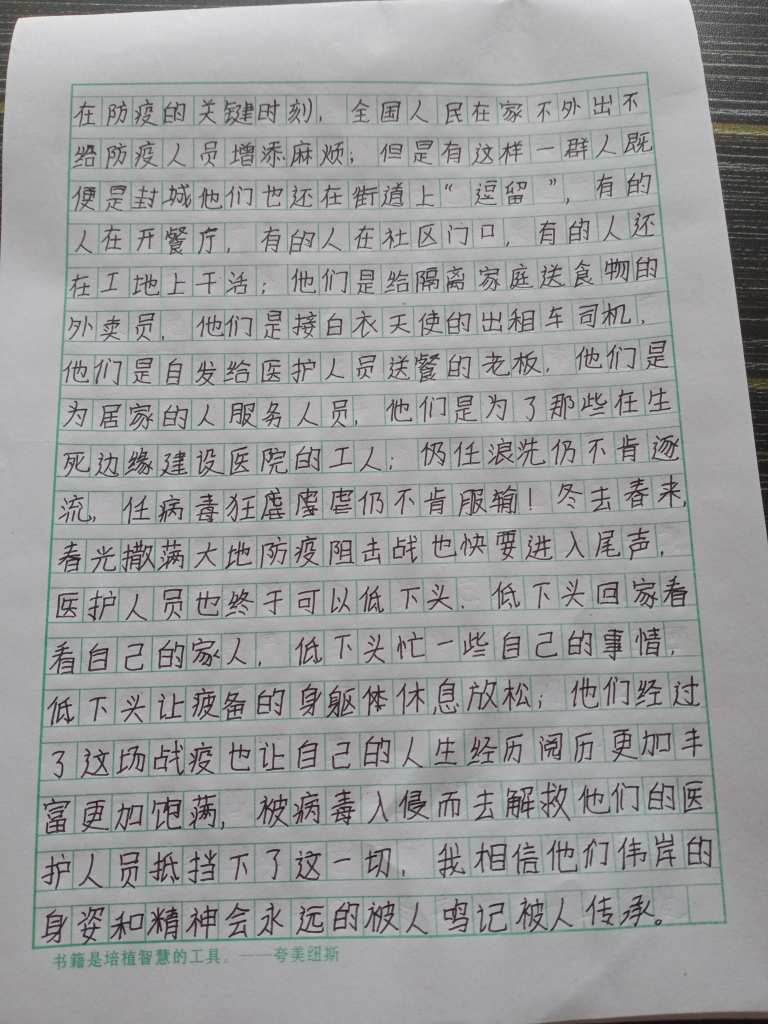 在防疫的关键时刻，全国人民在家不外出不
给防疫人员增添麻烦；但是有这样一群人既
便是封城他们也还在街道上“逗留”，有的
人在开餐厅，有的人在社区门口，有的人还
在工地上干活；他们是给隔离家庭送食物的
外卖员，他们是接白衣天使的出租车司机，
他们是自发给医护人员送餐的老板，他们是
为居家的人服务人员，他们是为了那些在生
死边缘建设医院的工人；仍任浪洗仍不肯逐
流，任病毒狂虐虐虐仍不肯服输！冬去春来，
春光撒满大地防疫阻击战也快要进入尾声，
医护人员也终于可以低下头，低下头回家看
看自己的家人，低下头忙一些自己的事情，
低下头让疲备的身躯体休息放松；他们经过
了这场战疫也让自己的人生经历阅历更加丰
富更加饱满，被病毒入侵而去解救他们的医
护人员抵挡下了这一切，我相信他们伟岸的
身姿和精神会永远的被人鸣记被人传承。
书籍是培植智慧的工具。——夸美纽斯